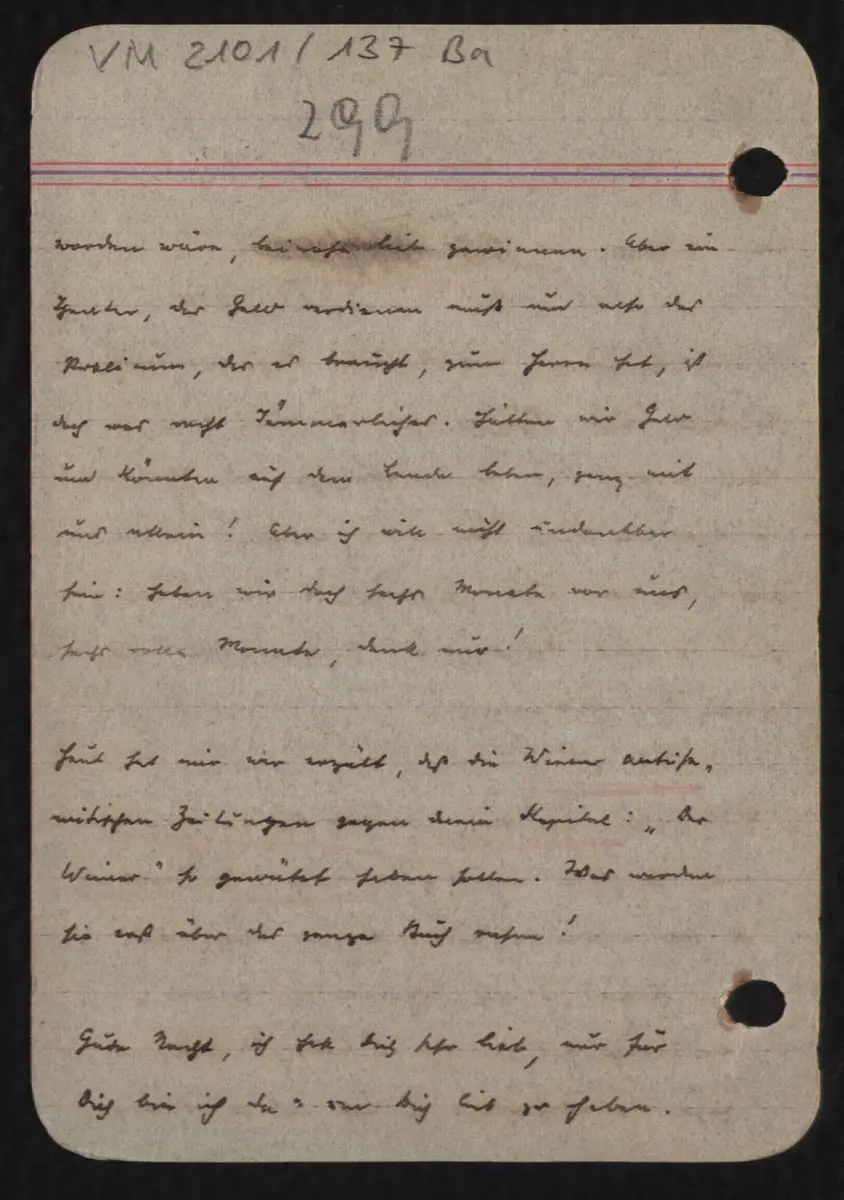 VM 2101/137 Ba
299
worden wäre, beinahe lieb gewinnen. Aber ein
Theater, das Geld verdienen muß und also das
Publicum, das es braucht, zum Herrn hat, ist
doch was recht Jämmerliches. Hätten wir Geld
und könnten auf dem Lande leben, ganz mit
uns allein! Aber ich will nicht undankbar
sein: haben wir doch sechs Monate vor uns,
sechs volle Monate, denk nur!
Heut hat mir wer erzält, daß die Wiener antise-
mitischen Zeitungen gegen dein Kapitel: „Der
Wiener" so gewütet haben sollen. Was werden
sie erst über das ganze Buch rasen!
Gute Nacht, ich hab Dich sehr lieb, nur für
Dich bin ich da u. um Dich lieb zu haben.